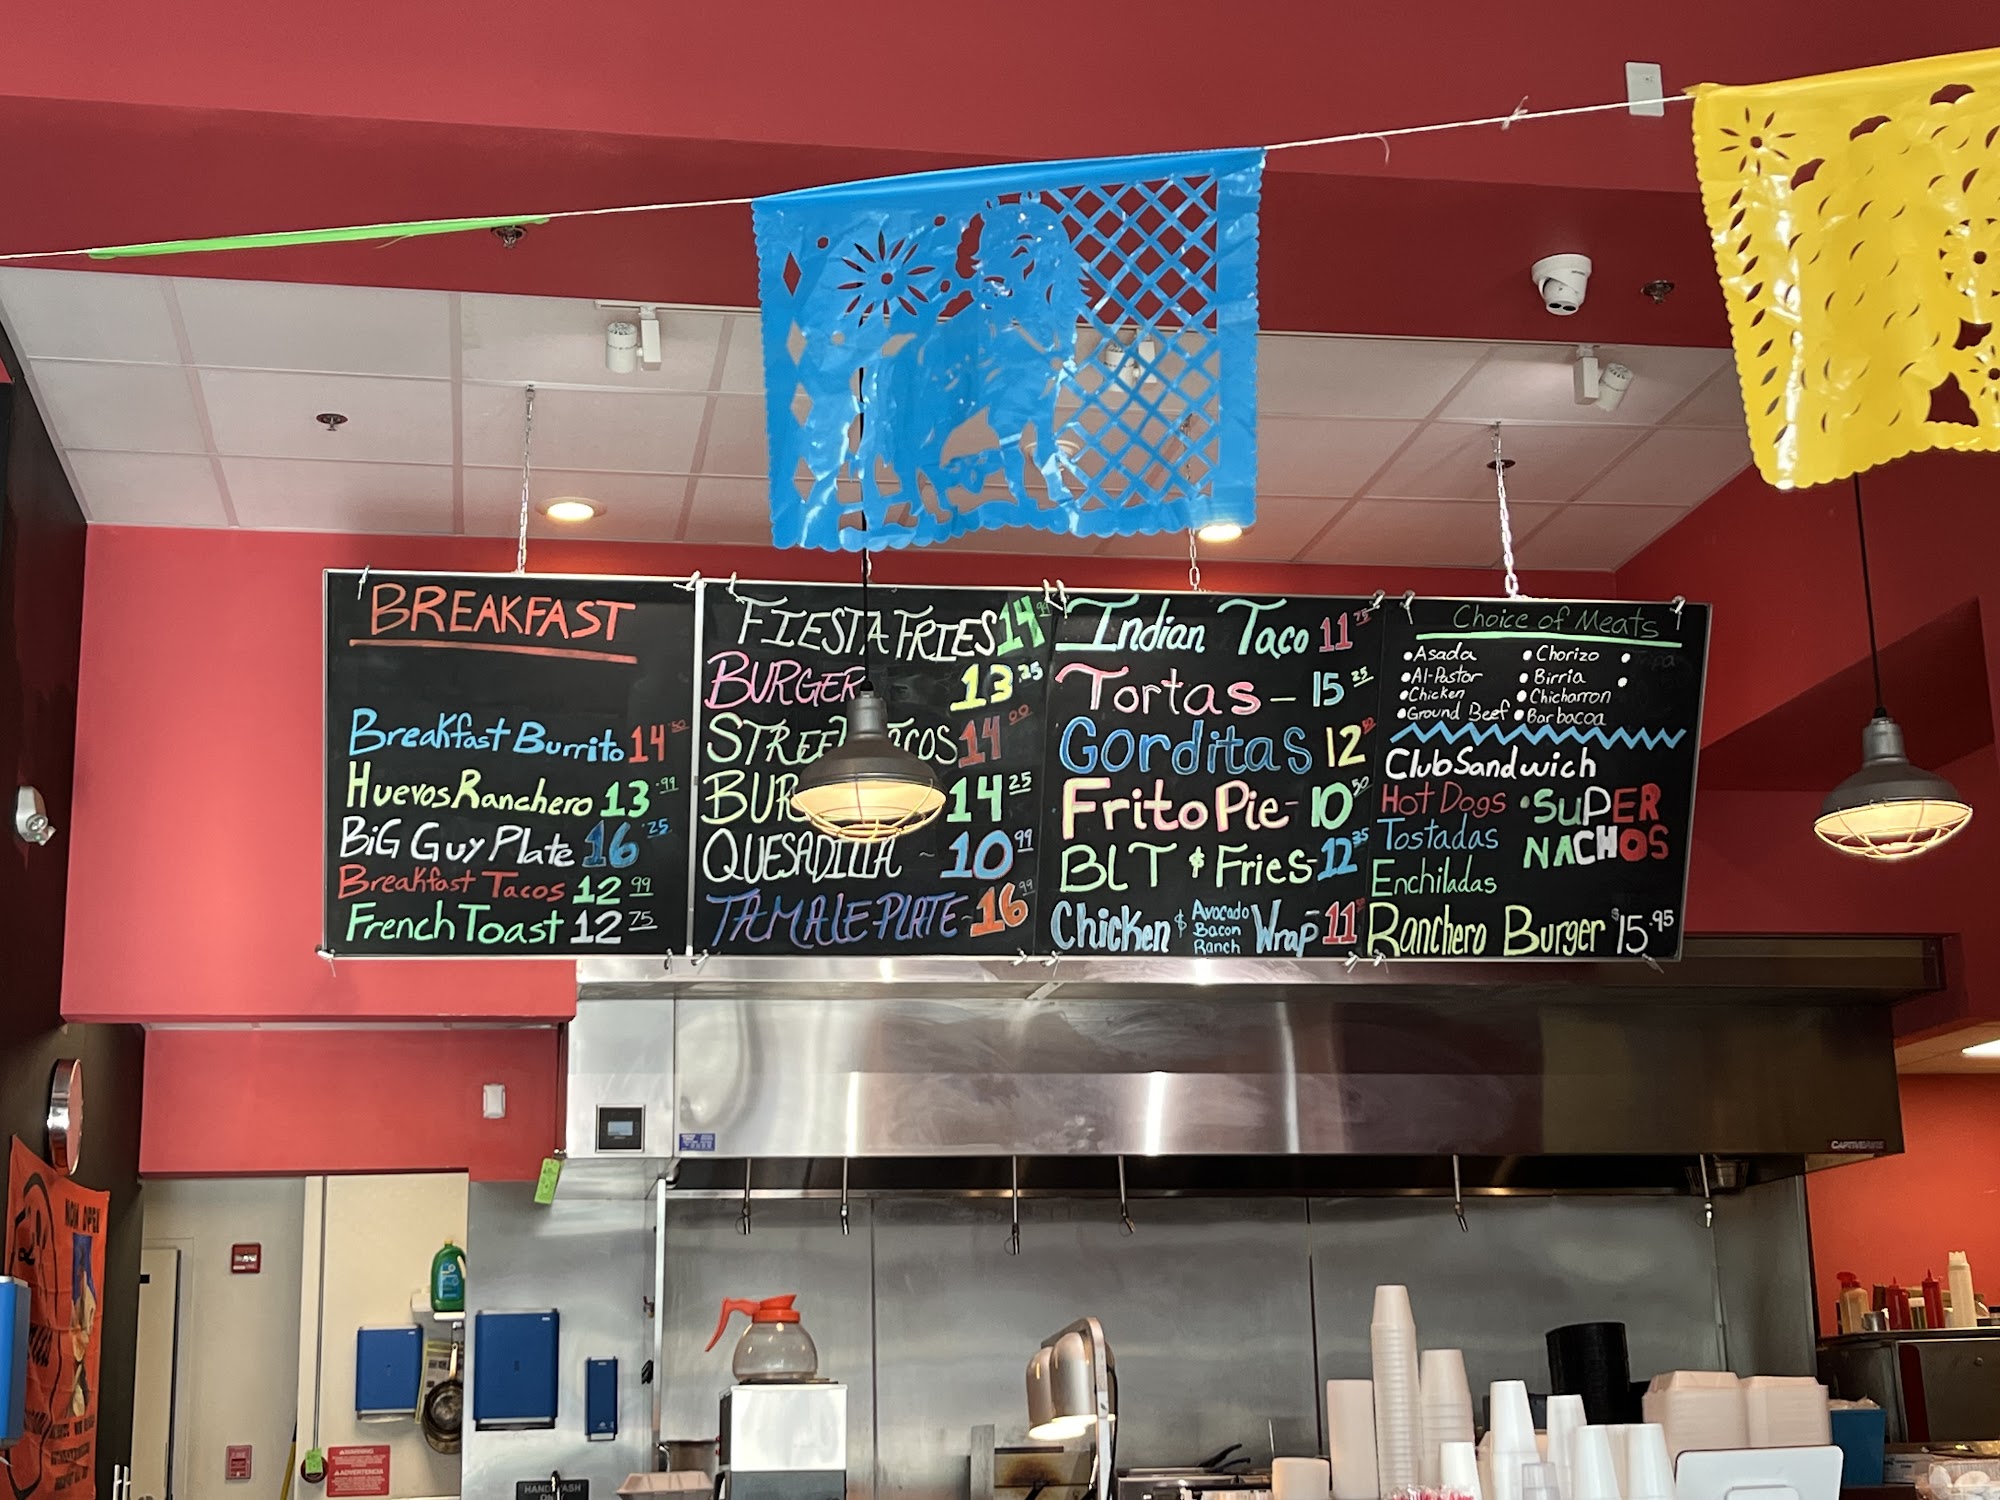 BREAKFAST
Breakfast Burrito 14 .50
Huevos Ranchero 13 .99
BiG Guy Plate 16 .25
Breakfast Tacos 12 99
French Toast 12 75
FIESTA FRIES 14 99
BURGER 13 25
STREET TACOS 14 00
14 25
QUESADILLA ~ 10 99
TAMALE PLATE - 16 99
Indian Taco 11 75
Tortas - 15 25
Gorditas 12 50
Frito Pie - 10 50
BLT & Fries - 12 35
Chicken & Avocado Bacon Ranch Wrap - 11
Choice of Meats
• Asada
• Al-Pastor
• Chicken
• Ground Beef
• Chorizo
• Birria
• Chicharron
• Barbacoa
Club Sandwich
Hot Dogs
Tostadas
Enchiladas
• SuPER
NACHOS
Ranchero Burger $15.95
CAPTIVEAIRE
NOW OPEN
WARNING
ADVERTENCIA
HAND WASH
ONLY